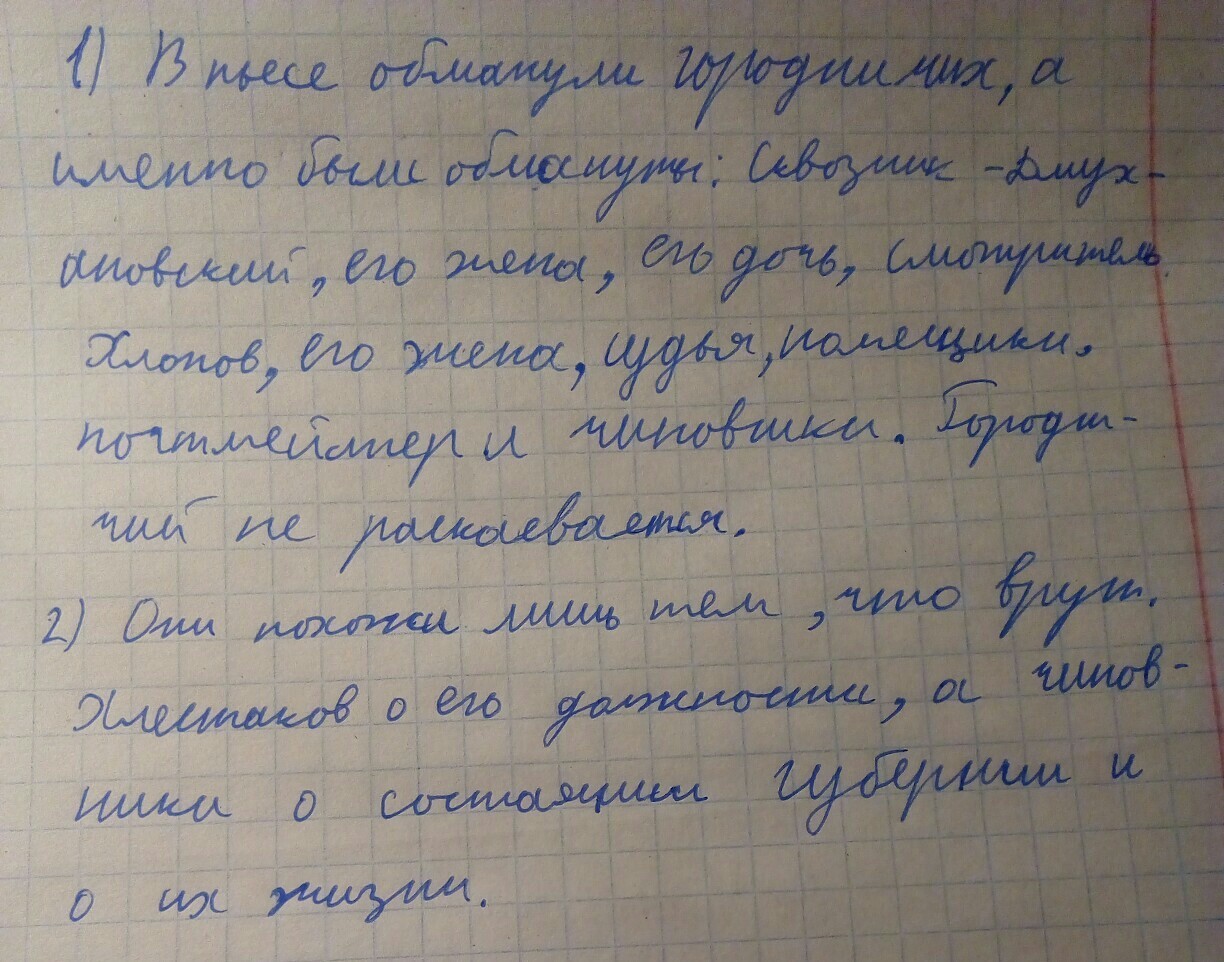 1) В пьесе обманули городничих, а
именно были обмануты: Сквозник-Дмух-
ановский, его жена, его дочь, смотритель
Хлопов, его жена, судья, помещики,
почтмейстер и чиновники. Городни-
чий не раскаевается.
2) Они похожи лишь тем, что врут.
Хлестаков о его должности, а чинов-
ники о состоянии губернии и
о их жизни.